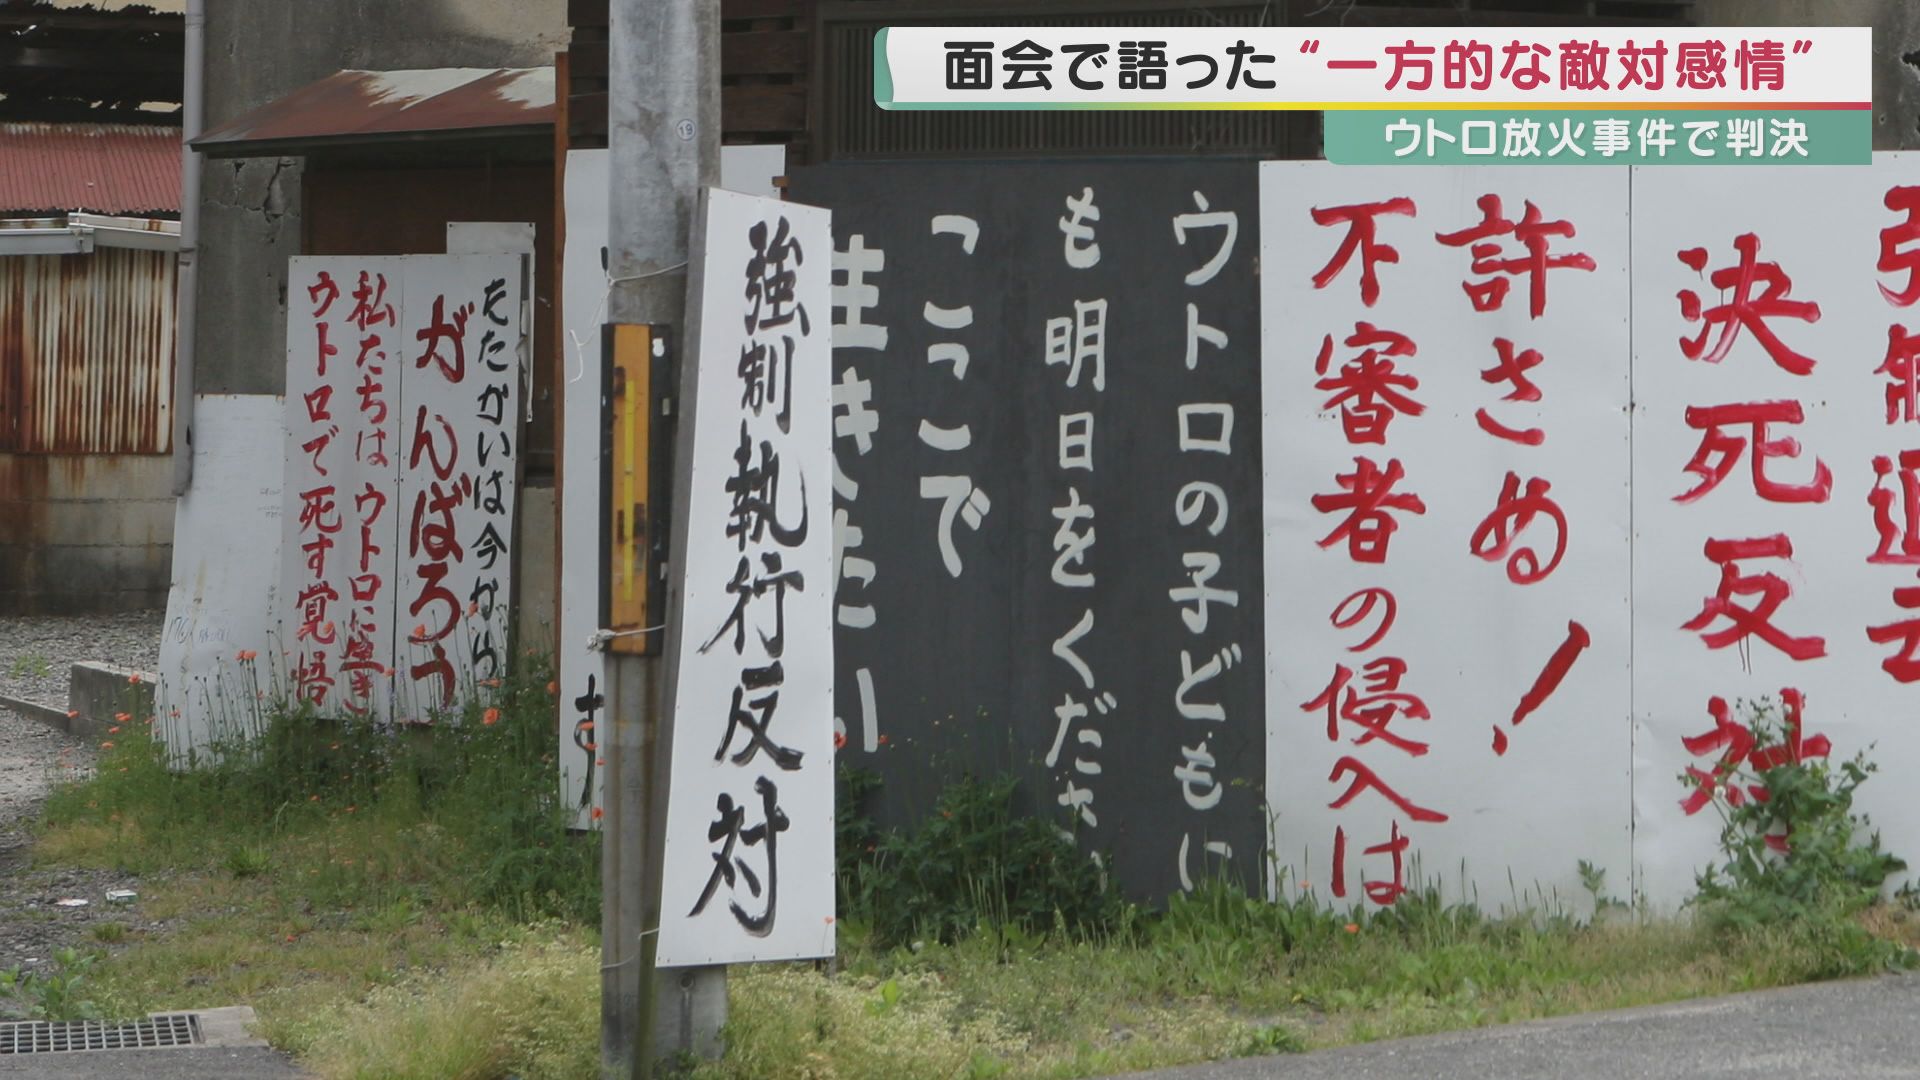 面会で語った “一方的な敵対感情”
ウトロ放火事件で判決
強無
決死反対
許さぬ!
不審者の侵入は
ウトロの子どもに
も明日をくださ
ここで
生きたい
強制執行反対
19
たたかいは今から
がんばろう
私たちは ウトロに生き
ウトロで死す覚悟